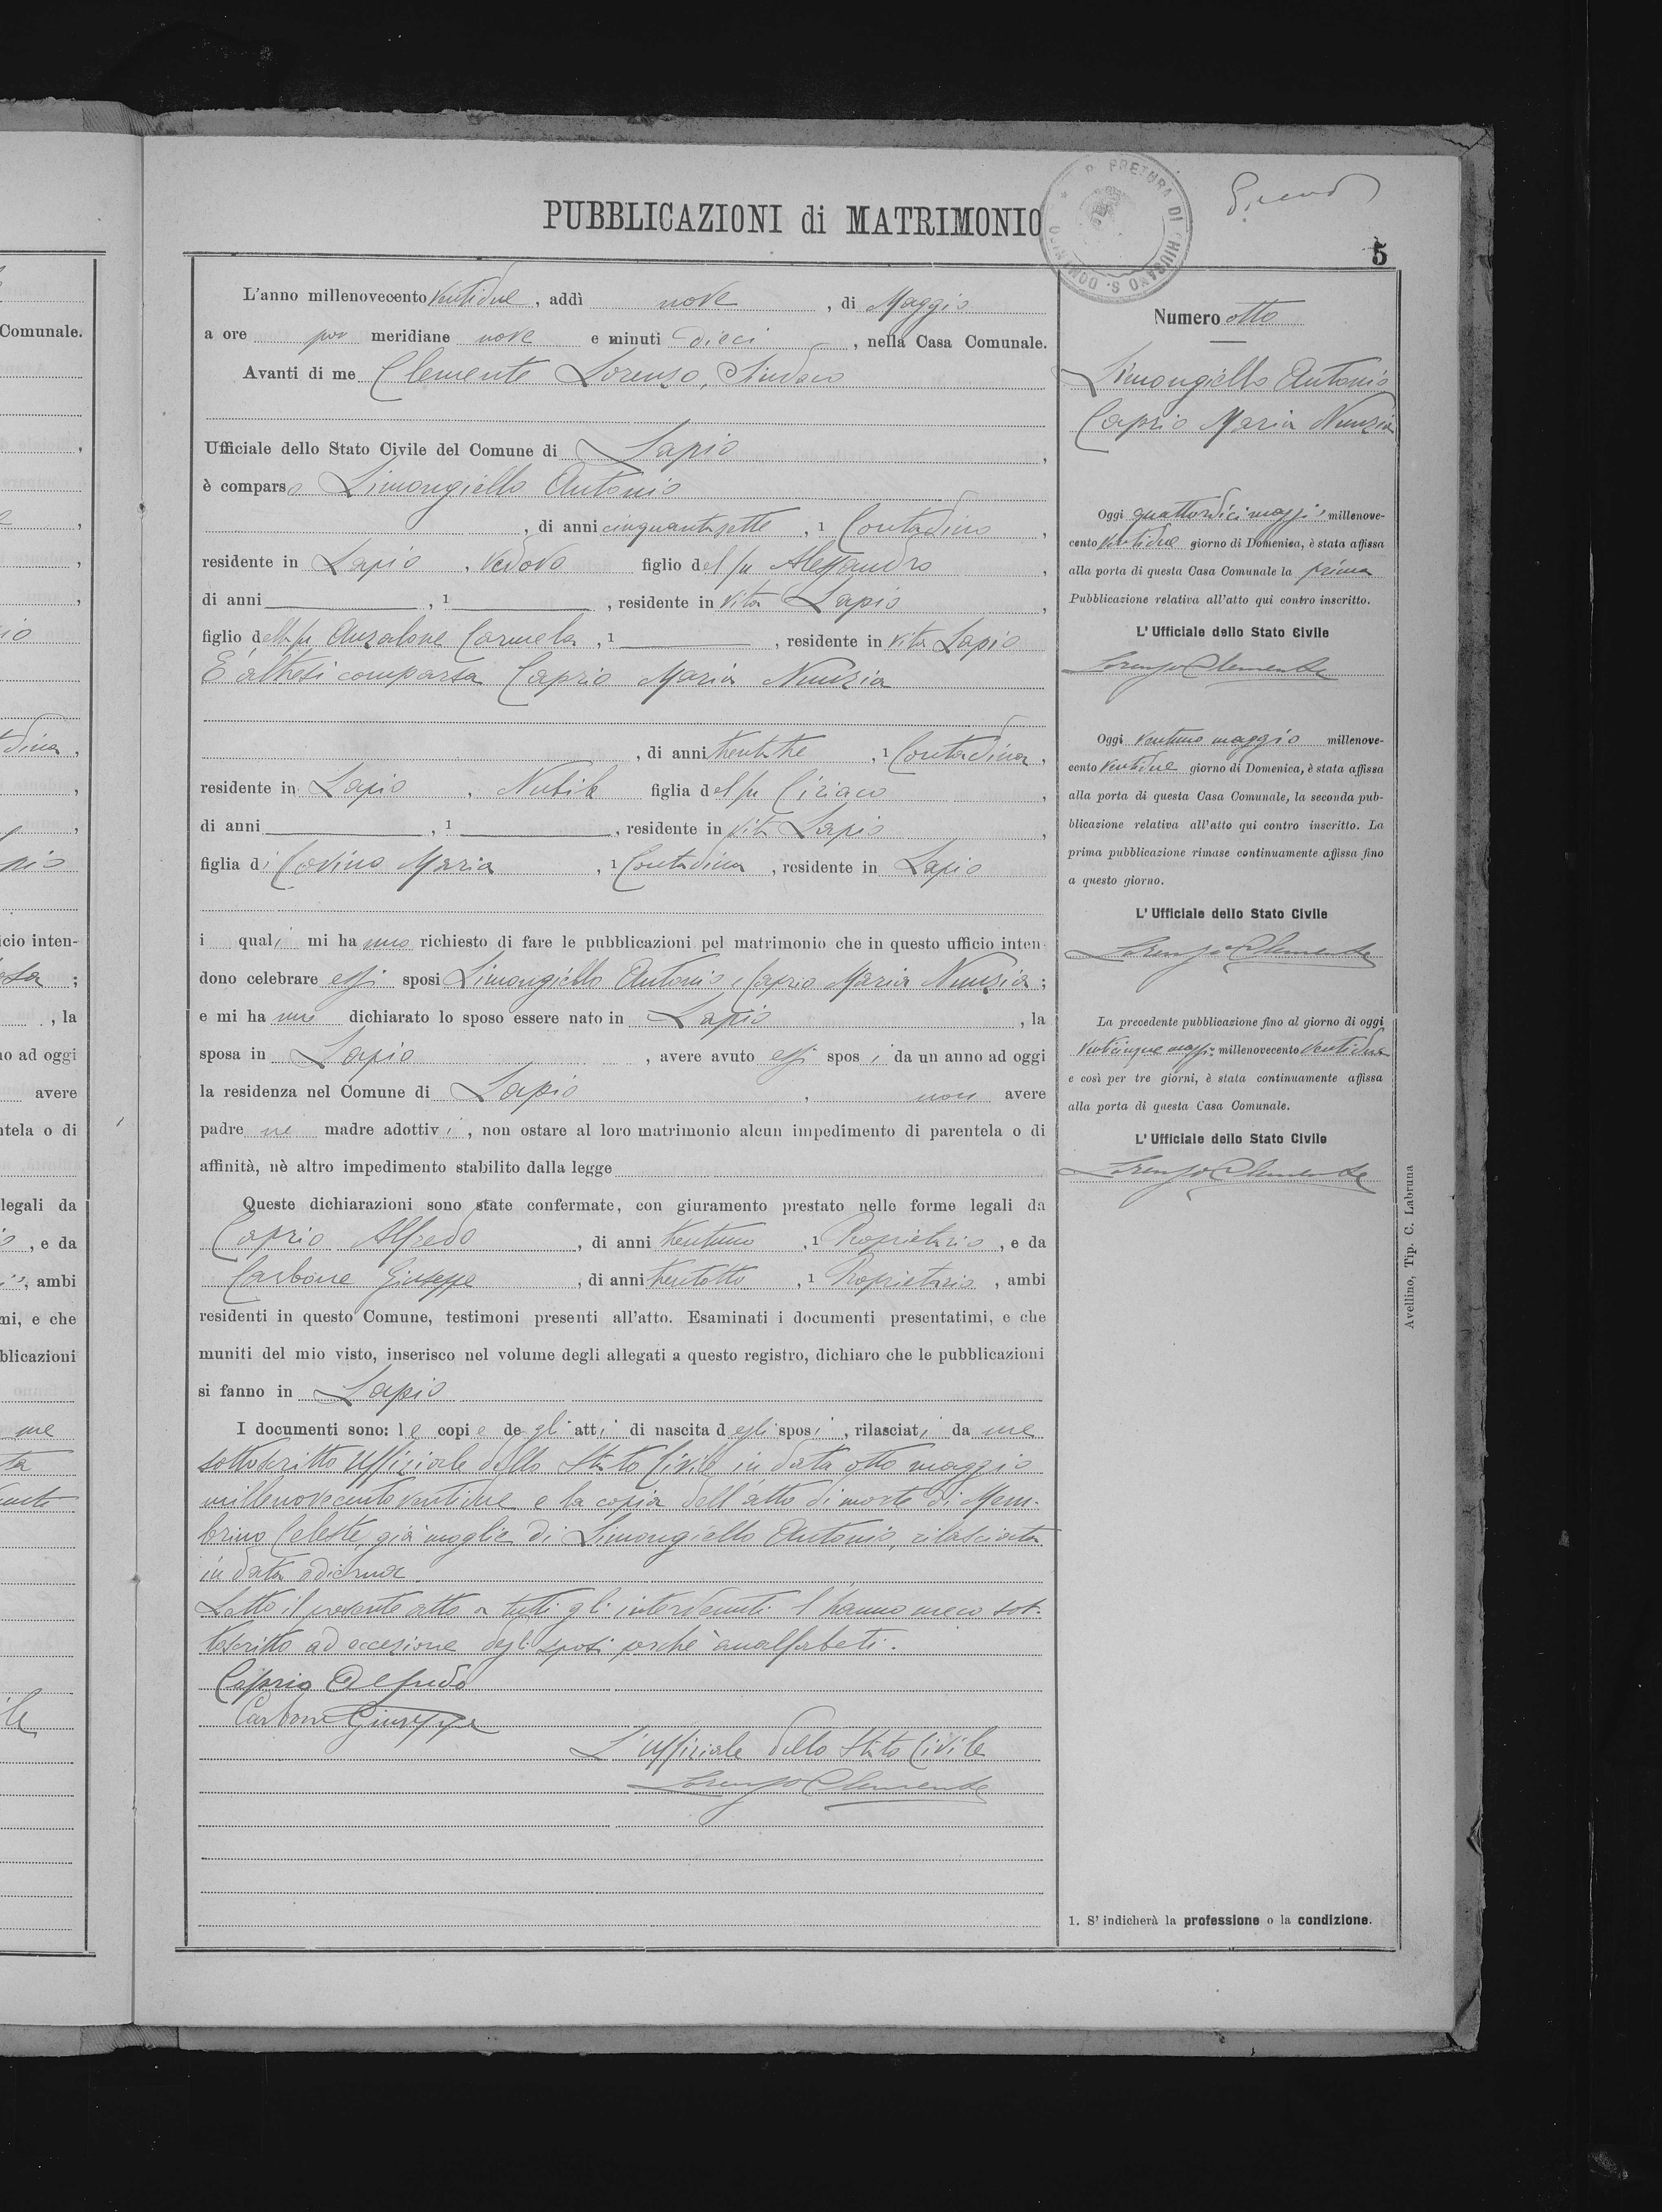 PUBBLICAZIONI di MATRIMONIO
R. PRETURA DI CHIUSANO S. DOMENICO
5
L'anno millenovecento ventidue, addì nove, di Maggio
a ore pom meridiane nove e minuti dieci, nella Casa Comunale.
Avanti di me Clemente Lorenzo, Sindaco
Ufficiale dello Stato Civile del Comune di Lapio,
è comparso Limongiello Antonio
, di anni cinquantasette, 1 Contadino,
residente in Lapio, vedovo figlio del fu Alessandro,
di anni , 1 , residente in vita Lapio,
figlio della fu Anzalone Carmela, 1 , residente in vita Lapio
È altresì comparsa Caprio Maria Nunzia
, di anni trentatre, 1 Contadina,
residente in Lapio, Nubile figlia del fu Ciriaco,
di anni , 1 , residente in vita Lapio,
figlia di Maria, 1 Contadina, residente in Lapio
i quali mi hanno richiesto di fare le pubblicazioni pel matrimonio che in questo ufficio inten-
dono celebrare essi sposi Limongiello Antonio e Caprio Maria Nunzia;
e mi hanno dichiarato lo sposo essere nato in Lapio, la
sposa in Lapio, avere avuto essi sposi da un anno ad oggi
la residenza nel Comune di Lapio, non avere
padre nè madre adottivi, non ostare al loro matrimonio alcun impedimento di parentela o di
affinità, nè altro impedimento stabilito dalla legge
Queste dichiarazioni sono state confermate, con giuramento prestato nelle forme legali da
Caprio Alfredo, di anni trentuno, 1 Proprietario, e da
Carbone Giuseppe, di anni trentotto, 1 Proprietario, ambi
residenti in questo Comune, testimoni presenti all'atto. Esaminati i documenti presentatimi, e che
muniti del mio visto, inserisco nel volume degli allegati a questo registro, dichiaro che le pubblicazioni
si fanno in Lapio
I documenti sono: le copie degli atti di nascita degli sposi, rilasciati da me
sottoscritto Uffiziale dello Stato Civile in data otto maggio
millenovecentoventidue e la copia dell'atto di morte di Mem-
brino Celeste, già moglie di Limongiello Antonio, rilasciata
in data odierna.
Letto il presente atto a tutti gli intervenuti l'hanno meco sot-
toscritto ad eccezione degli sposi perchè analfabeti.
Caprio Alfredo
Carbone Giuseppe
L'Uffiziale dello Stato Civile
Lorenzo Clemente
Numero otto
Limongiello Antonio
Caprio Maria Nunzia
Oggi quattordici maggio millenove-
cento ventidue giorno di Domenica, è stata affissa
alla porta di questa Casa Comunale la prima
Pubblicazione relativa all'atto qui contro inscritto.
L'Ufficiale dello Stato Civile
Lorenzo Clemente
Oggi ventuno maggio millenove-
cento ventidue giorno di Domenica, è stata affissa
alla porta di questa Casa Comunale, la seconda pub-
blicazione relativa all'atto qui contro inscritto. La
prima pubblicazione rimase continuamente affissa fino
a questo giorno.
L'Ufficiale dello Stato Civile
Lorenzo Clemente
La precedente pubblicazione fino al giorno di oggi
venticinque maggio millenovecento ventidue
e così per tre giorni, è stata continuamente affissa
alla porta di questa Casa Comunale.
L'Ufficiale dello Stato Civile
Lorenzo Clemente
Avellino, Tip. C. Labruna
1. S'indicherà la professione o la condizione.
Comunale.
icio inten-
, la
no ad oggi
avere
ntela o di
legali da
, e da
, ambi
ni, e che
blicazioni
me